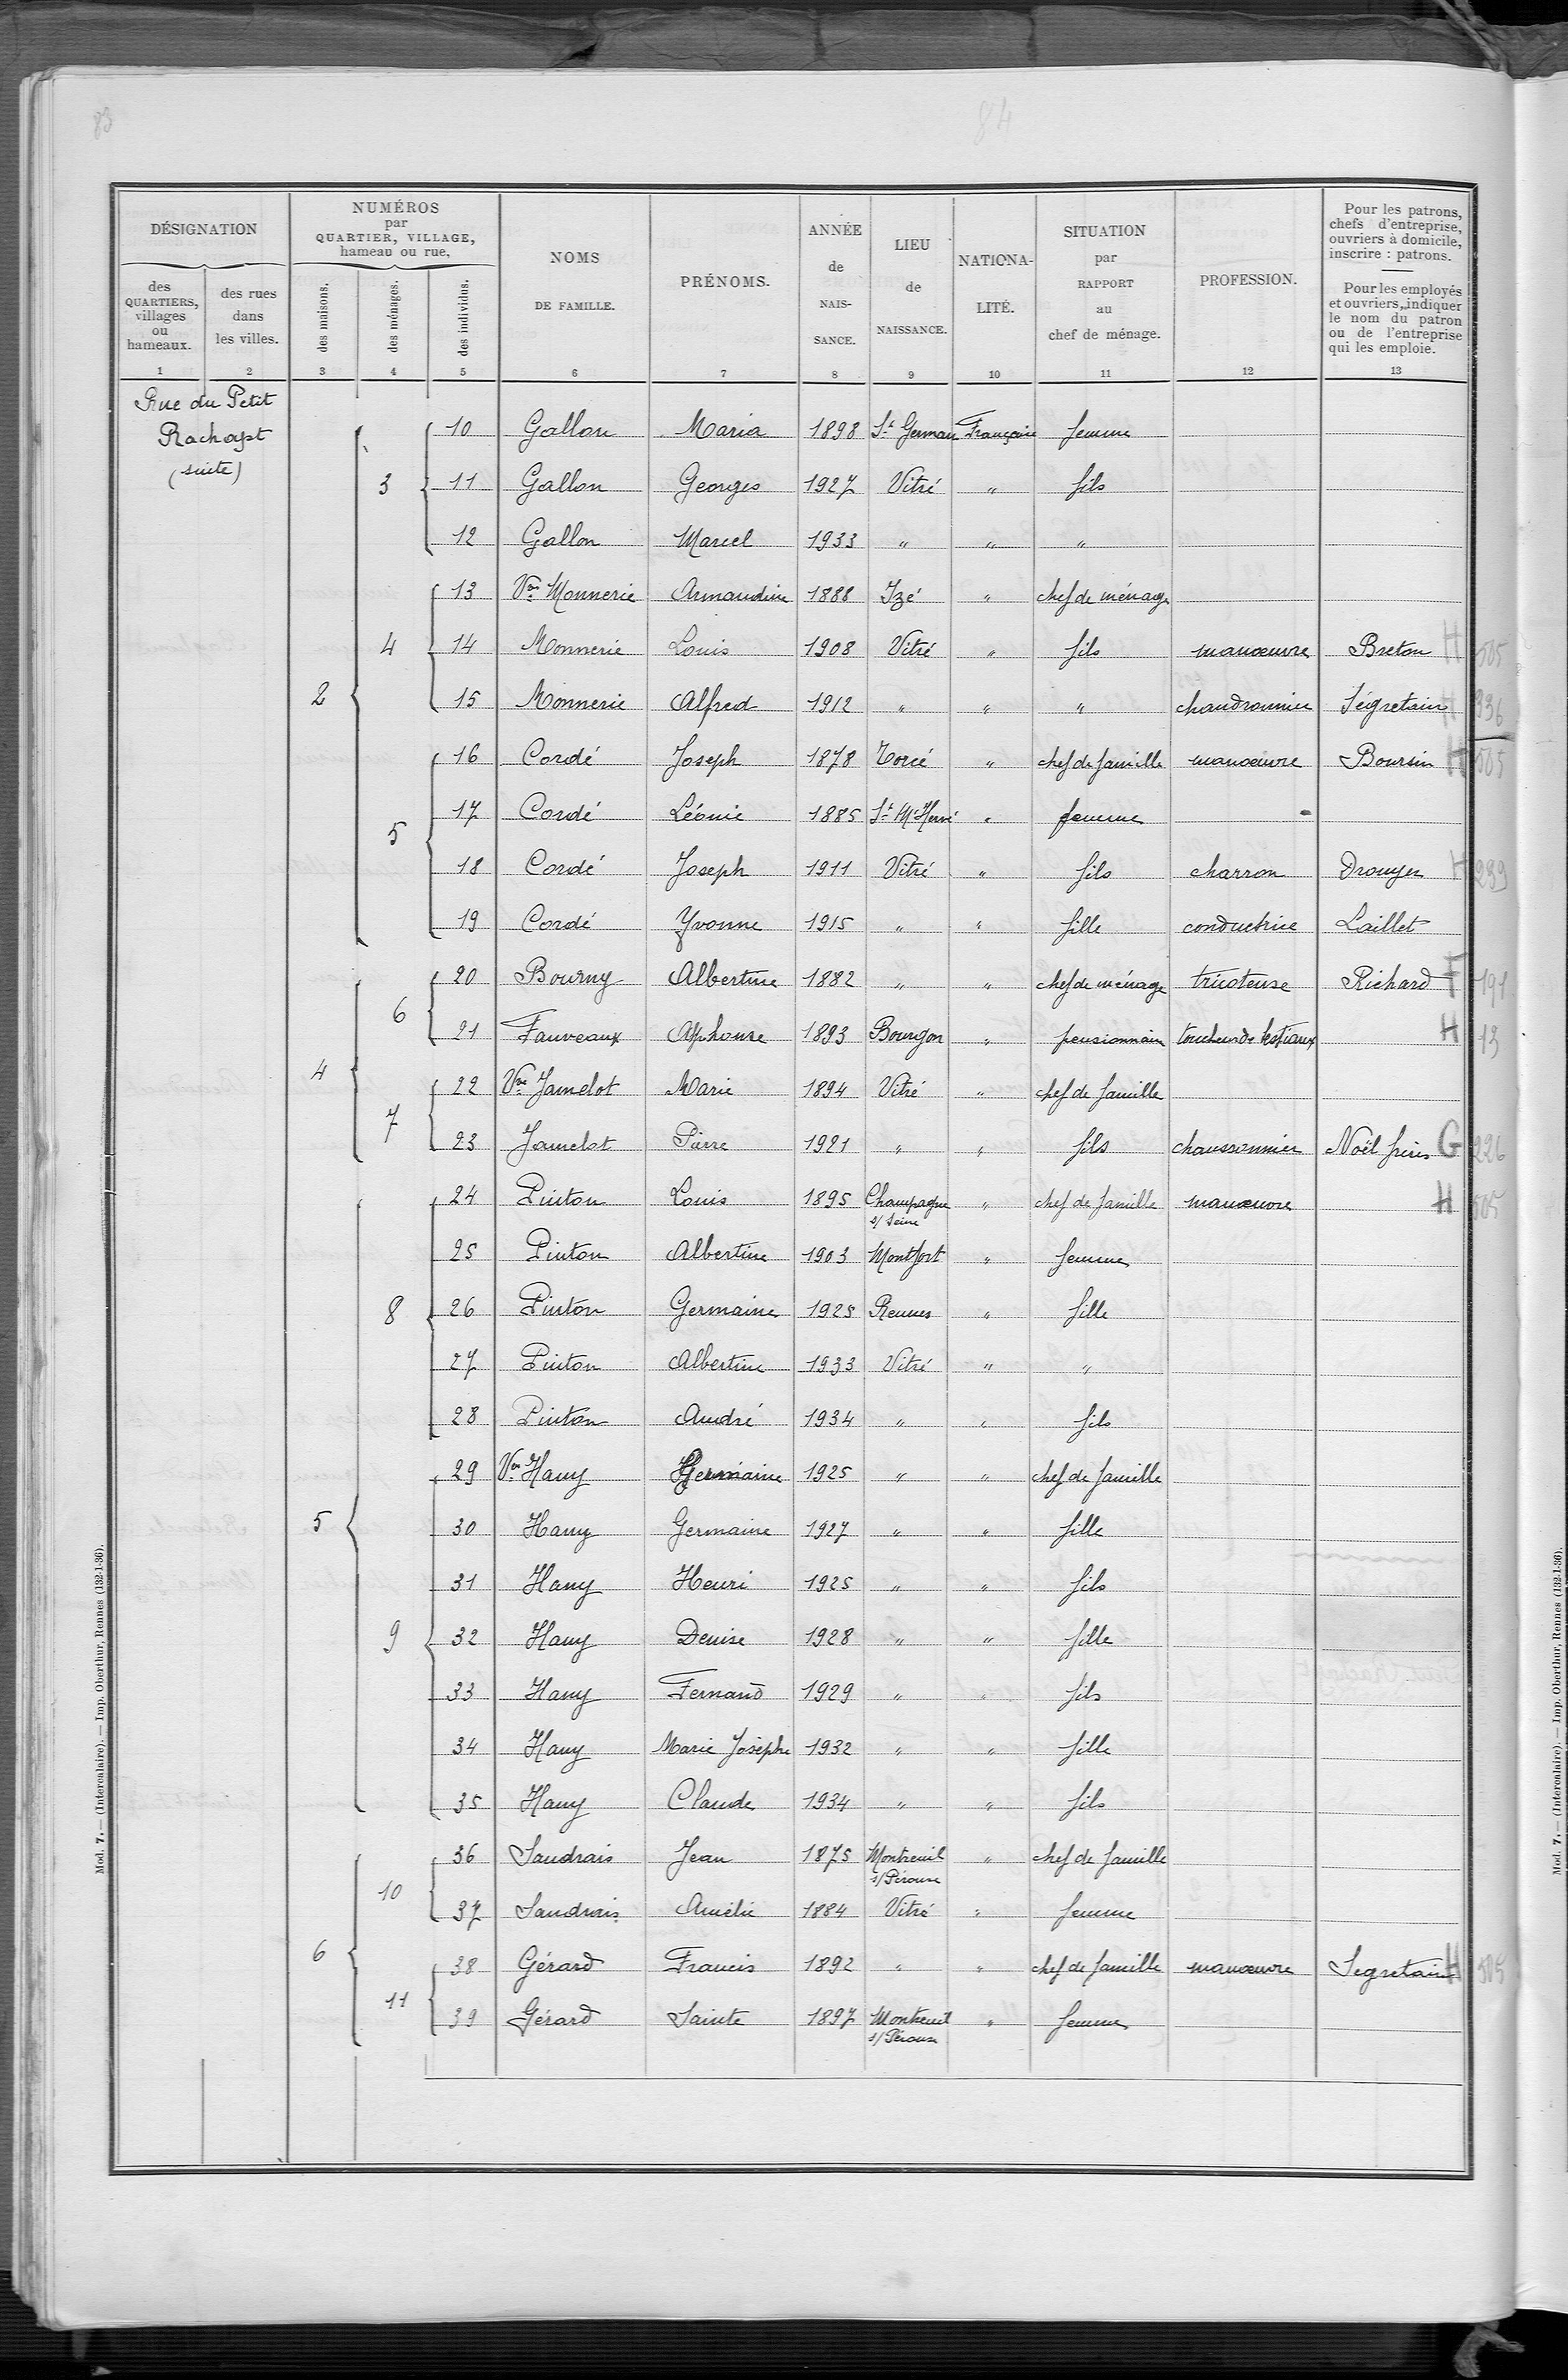 83
84
DÉSIGNATION
NUMÉROS
par
QUARTIER, VILLAGE,
hameau ou rue.
des
QUARTIERS,
villages
ou
hameaux.
des rues
dans
les villes.
des maisons.
des ménages.
des individus.
NOMS
DE FAMILLE.
PRÉNOMS.
ANNÉE
de
NAIS-
SANCE.
LIEU
de
NAISSANCE.
NATIONA-
LITÉ.
SITUATION
par
RAPPORT
au
chef de ménage.
PROFESSION.
Pour les patrons,
chefs d'entreprise,
ouvriers à domicile,
inscrire : patrons.
Pour les employés
et ouvriers, indiquer
le nom du patron
ou de l'entreprise
qui les emploie.
1 2 3 4 5 6 7 8 9 10 11 12 13
Rue du Petit
Rachapt
(suite)
10 Gallon Maria 1898 St Germain Française femme
3 11 Gallon Georges 1927 Vitré " fils
12 Gallon Marcel 1933 " " "
13 Vve Monnerie Armandine 1888 Izé " chef de ménage
4 14 Monnerie Louis 1908 Vitré " fils manœuvre Breton H 505
2 15 Monnerie Alfred 1912 " " " chaudronnier Ségretain H 936
16 Cordé Joseph 1878 Torcé " chef de famille manœuvre Boursin H 505
5 17 Cordé Léonie 1885 St M Hervé " femme
18 Cordé Joseph 1911 Vitré " fils charron Drouyer H 239
19 Cordé Yvonne 1915 " " fille conductrice Laillet
20 Bourny Albertine 1882 " " chef de ménage tricoteuse Richard F 191
6 21 Fauveaux Alphonse 1893 Bourgon " pensionnaire toucheur de bestiaux H 13
4 22 Vve Jamelot Marie 1894 Vitré " chef de famille
7 23 Jamelot Pierre 1921 " " fils chaussonnier Noël frères G 226
24 Pinton Louis 1895 Champagne s/ Seine " chef de famille manœuvre H 505
25 Pinton Albertine 1903 Montfort " femme
8 26 Pinton Germaine 1925 Rennes " fille
27 Pinton Albertine 1933 Vitré " "
28 Pinton André 1934 " " fils
29 Vve Hany Germaine 1925 " " chef de famille
5 30 Hany Germaine 1927 " " fille
31 Hany Henri 1925 " " fils
9 32 Hany Denise 1928 " " fille
33 Hany Fernand 1929 " " fils
34 Hany Marie Josèphe 1932 " " fille
35 Hany Claude 1934 " " fils
36 Saudrais Jean 1875 Montreuil s/ Pérouse " chef de famille
10 37 Saudrais Amélie 1884 Vitré " femme
6 38 Gérard Francis 1892 " " chef de famille manœuvre Segretain H 505
11 39 Gérard Sainte 1897 Montreuil s/ Pérouse " femme
Mod. 7. — (Intercalaire). — Imp. Oberthur, Rennes (132-1-36).
Mod. 7. — (Intercalaire). — Imp. Oberthur, Rennes (132-1-36).